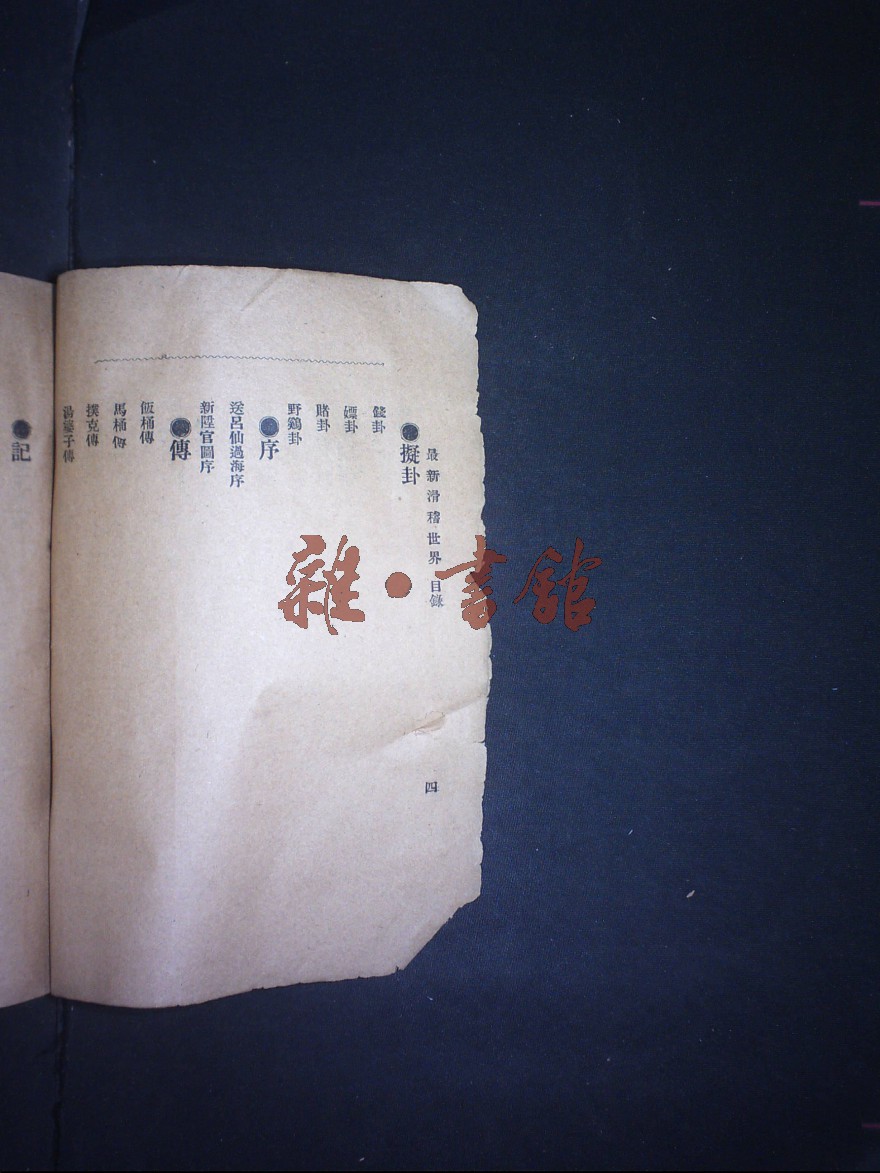 最新滑稽世界 目錄
四
●擬卦
錢卦
嫖卦
賭卦
野鷄卦
●序
送呂仙過海序
新陞官圖序
●傳
飯桶傳
馬桶傳
撲克傳
湯婆子傳
●記
雜·書館